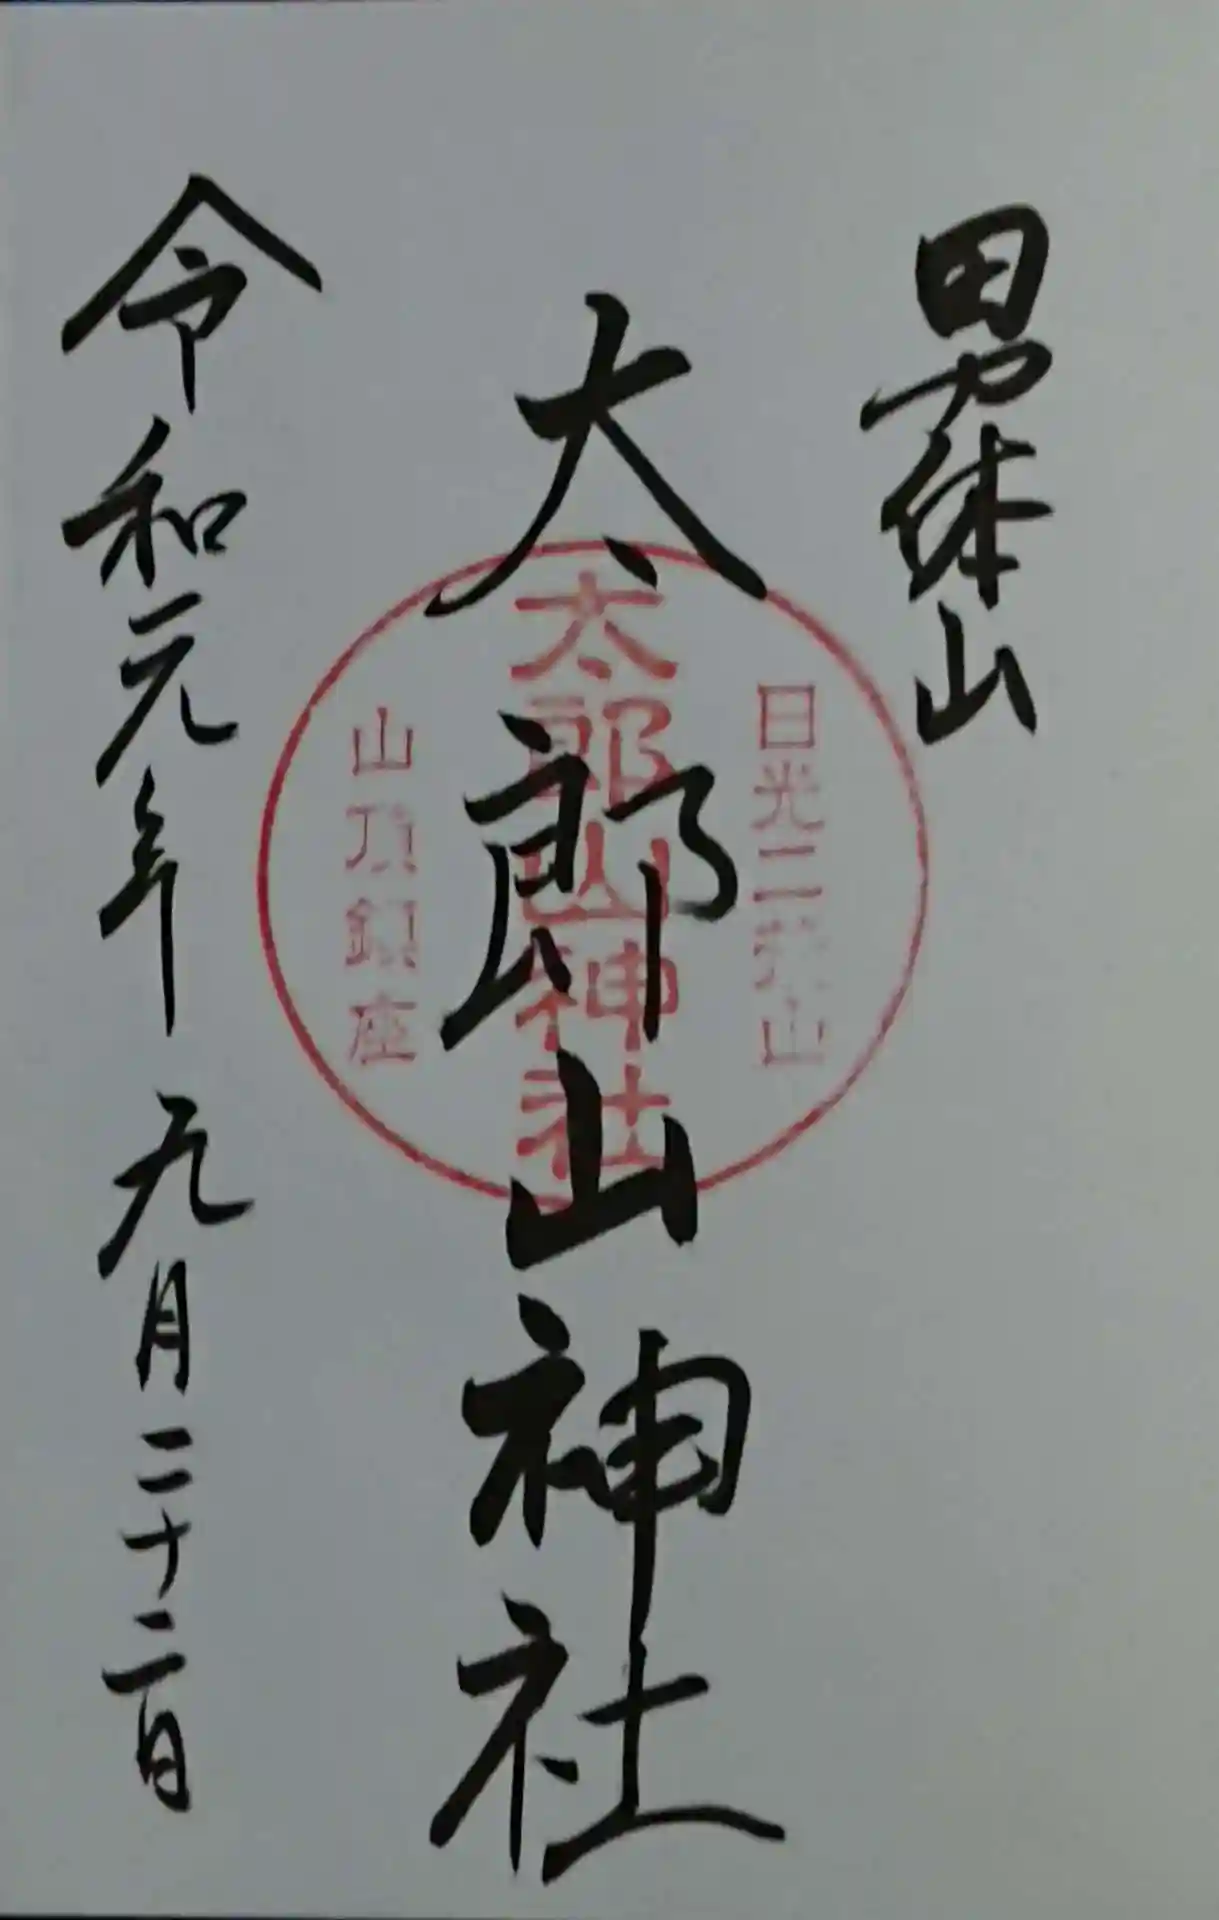 男体山
太郎山神社
令和元年 九月二十二日
日光二荒山
太郎山神社
山頂鎮座